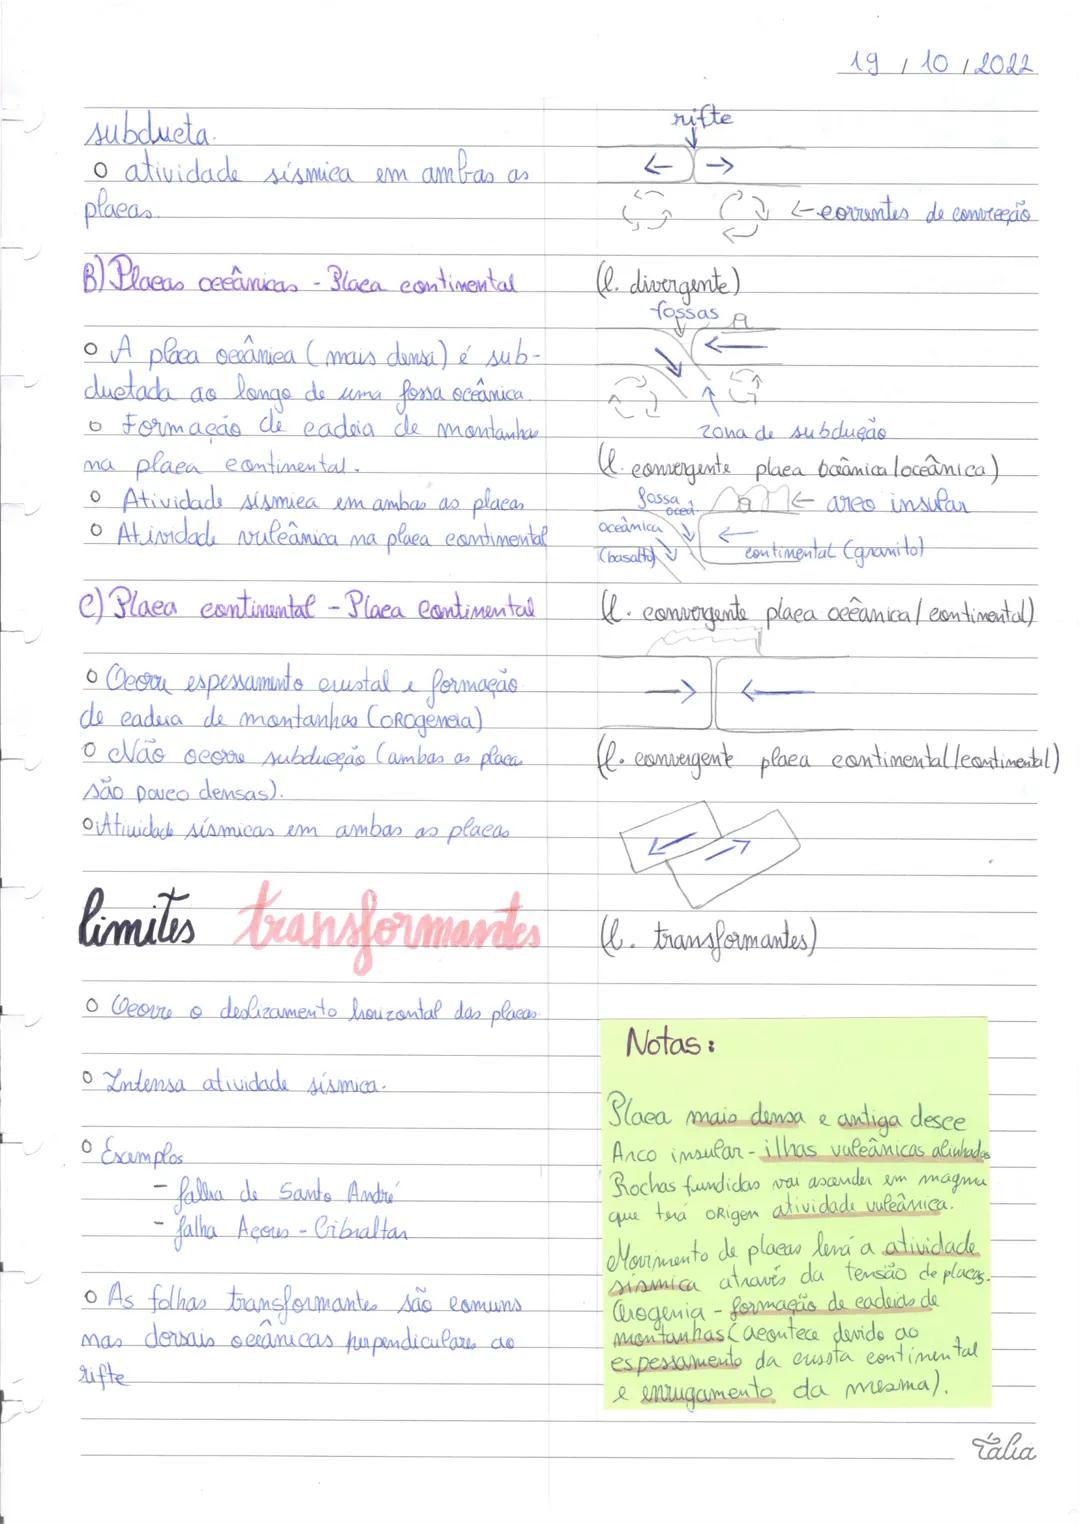 19 / 10 / 2022
subducta.
o atividade sísmica em ambas as
placas.
B) Placas oceânicas - Placa continental
o A placa oceânica (mais densa) é sub-
ductada ao longo de uma fossa oceânica.
o Formação de cadeia de montanhas
na placa continental.
o Atividade sísmica em ambas as placas
o Atividade vulcânica na placa continental
C) Placa continental - Placa Continental
o Ocorre espessamento crustal e formação
de cadeia de montanhas (OROGENEIA)
o Não ocorre subducção (ambas as placas
são pouco densas).
o Atividade sísmicas em ambas as placas
limites transformantes
o Ocorre o deslizamento horizontal das placas.
o Intensa atividade sísmica.
o Exemplos
- falha de Santo André
- falha Açores - Gibraltar
o As falhas transformantes são comuns
nas dorsais oceânicas perpendiculares ao
rifte
rifte
← correntes de convecção
(l. divergente)
fossas
zona de subdução
(l. convergente placa oceânica/oceânica)
fossa
oceâ.
← arco insular
oceânica
(basalto)
continental (granito)
(l. convergente placa oceânica/continental)
(l. convergente placa continental/continental)
(l. transformantes)
Notas:
Placa mais densa e antiga desce
Arco insular - ilhas vulcânicas alinhadas
Rochas fundidas vai ascender em magma
que terá origem atividade vulcânica.
Movimento de placas levá a atividade
sísmica através da tensão de placas.
Orogenia - formação de cadeias de
montanhas (acontece devido ao
espessamento da crusta continental
e enrugamento da mesma).
Tália